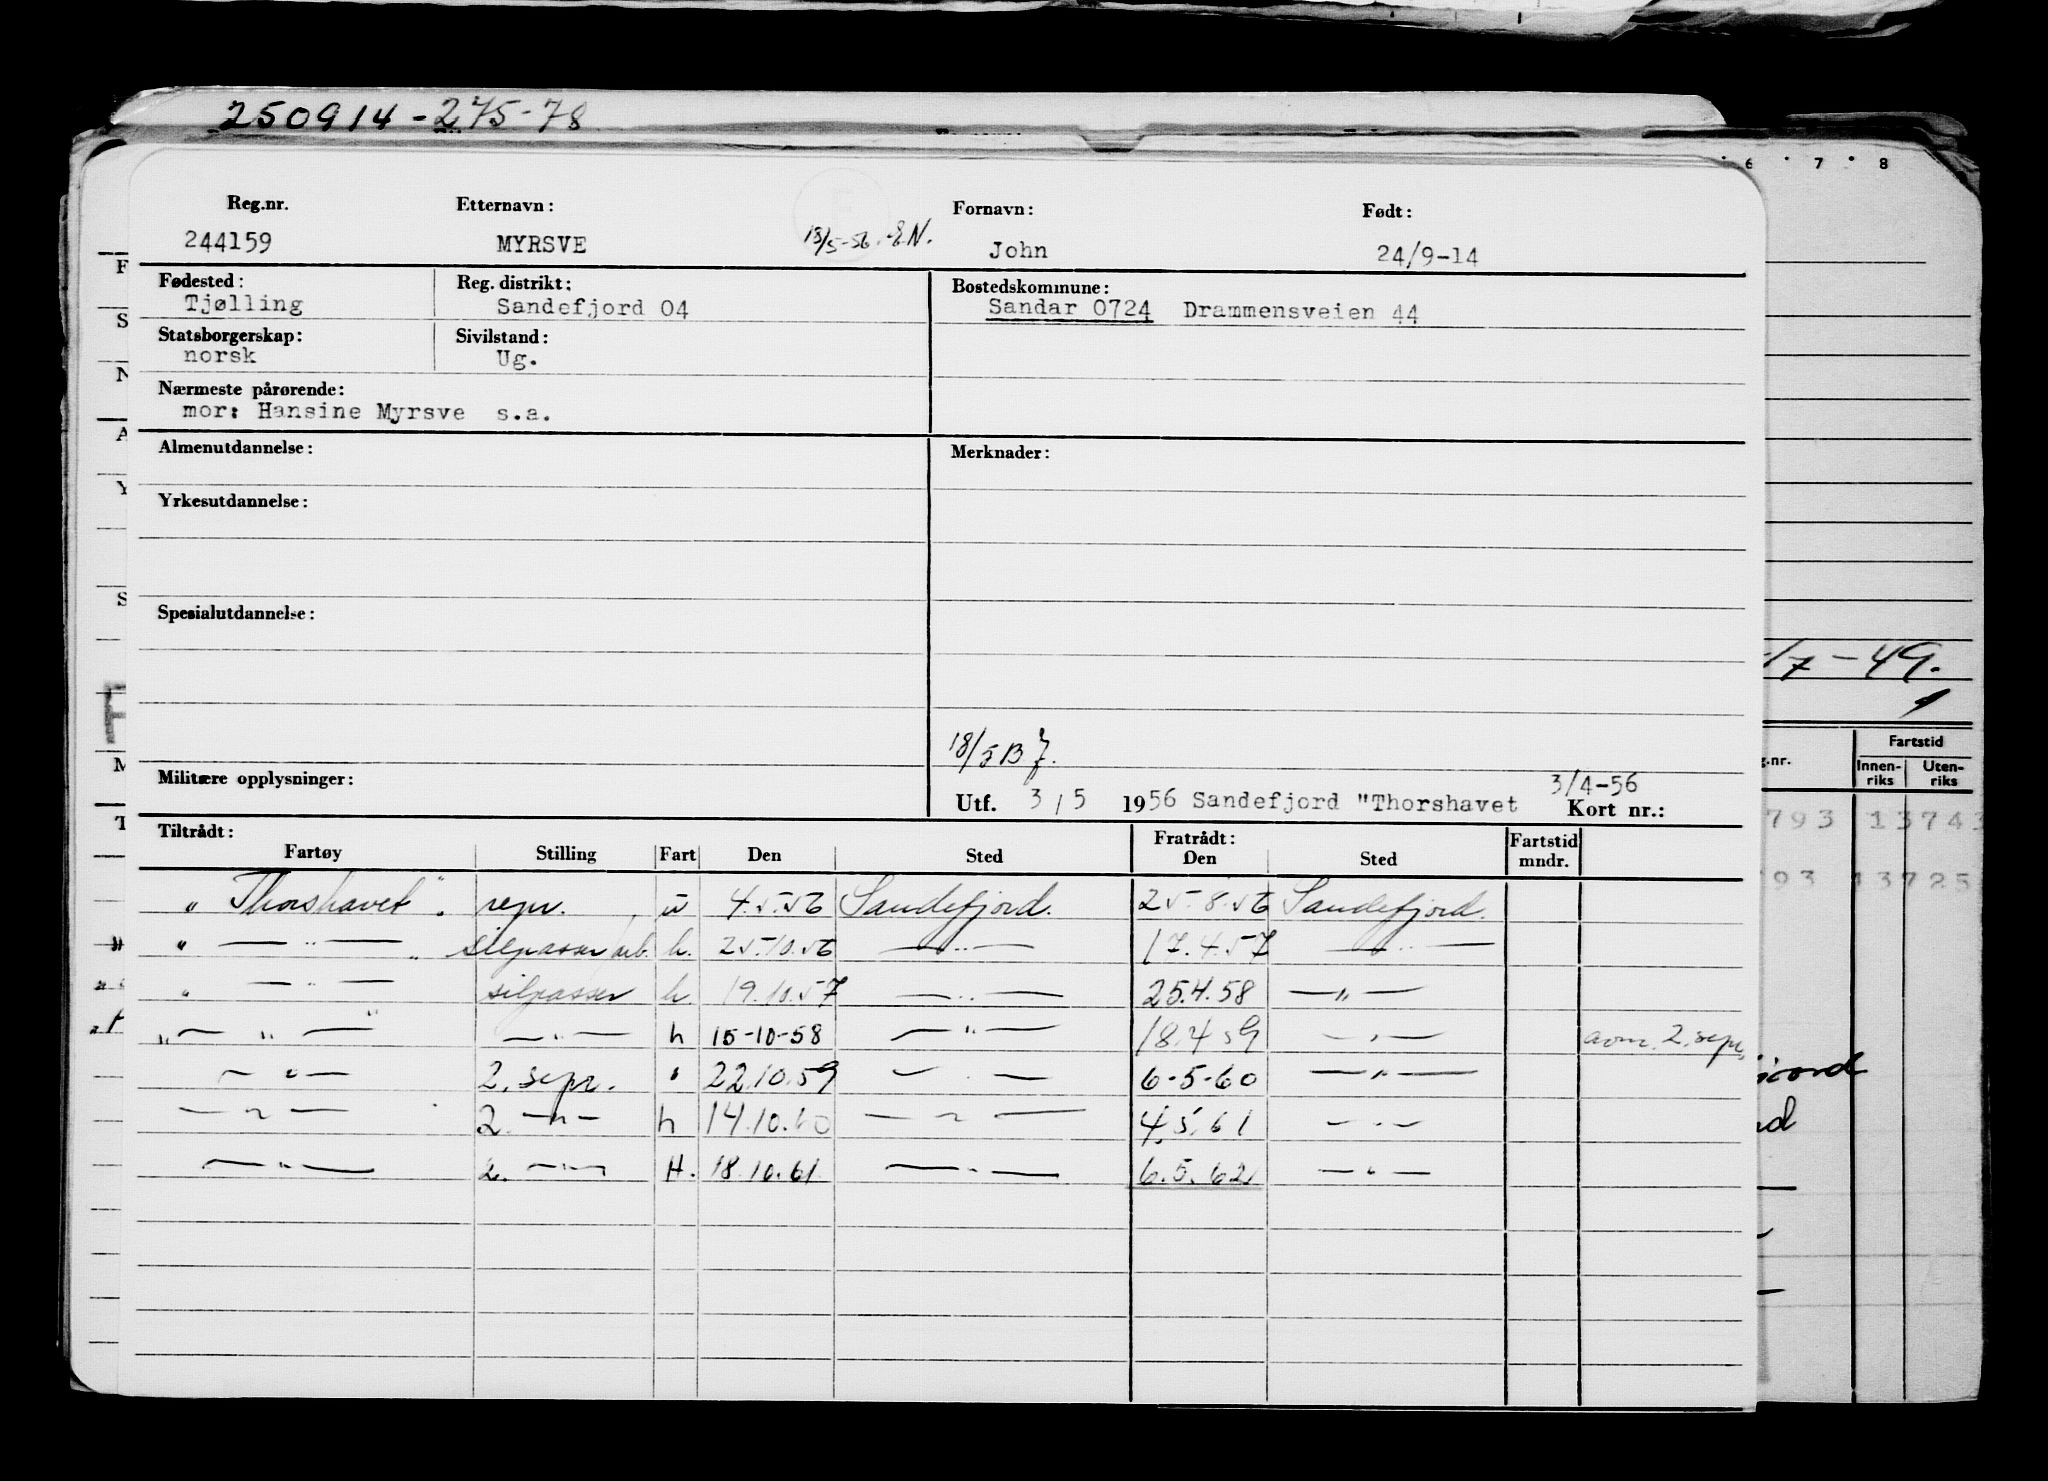 250914-275-78
6 · 7 · 8
Reg.nr. Etternavn: Fornavn: Født:
244159 MYRSVE 18/5-56. E.N. John 24/9-14
Fødested: Reg. distrikt: Bostedskommune:
Tjølling Sandefjord 04 Sandar 0724 Drammensveien 44
Statsborgerskap: Sivilstand:
norsk Ug.
Nærmeste pårørende:
mor: Hansine Myrsve s.a.
Almenutdannelse: Merknader:
Yrkesutdannelse:
Spesialutdannelse:
/7-49.
18/5 B
Militære opplysninger:
3/4-56
Utf. 3/5 1956 Sandefjord "Thorshavet Kort nr.:
Fartstid
g.nr. Innen-riks Uten-riks
793 13743
93 13725
Tiltrådt: Fratrådt:
Fartøy Stilling Fart Den Sted Den Sted Fartstid mndr.
"Thorshavet". repr. u 4.5.56 Sandefjord. 25.8.56 Sandefjord.
" — " — " seilpasser/arb. h. 25.10.56 — " — 17.4.57 — " —
" — " — seilpasser h 19.10.57 — " — 25.4.58 — " —
" — " — " — " — h 15-10-58 — " — 18.4.59 — " — avm. 2. repr.
— " — 2. repr. " 22.10.59 — " — 6-5-60 — " —
— " — 2. — " — h 14.10.60 — " — 4.5.61 — " —
— " — 2. — " — H. 18.10.61 — " — 6.5.62 — " —